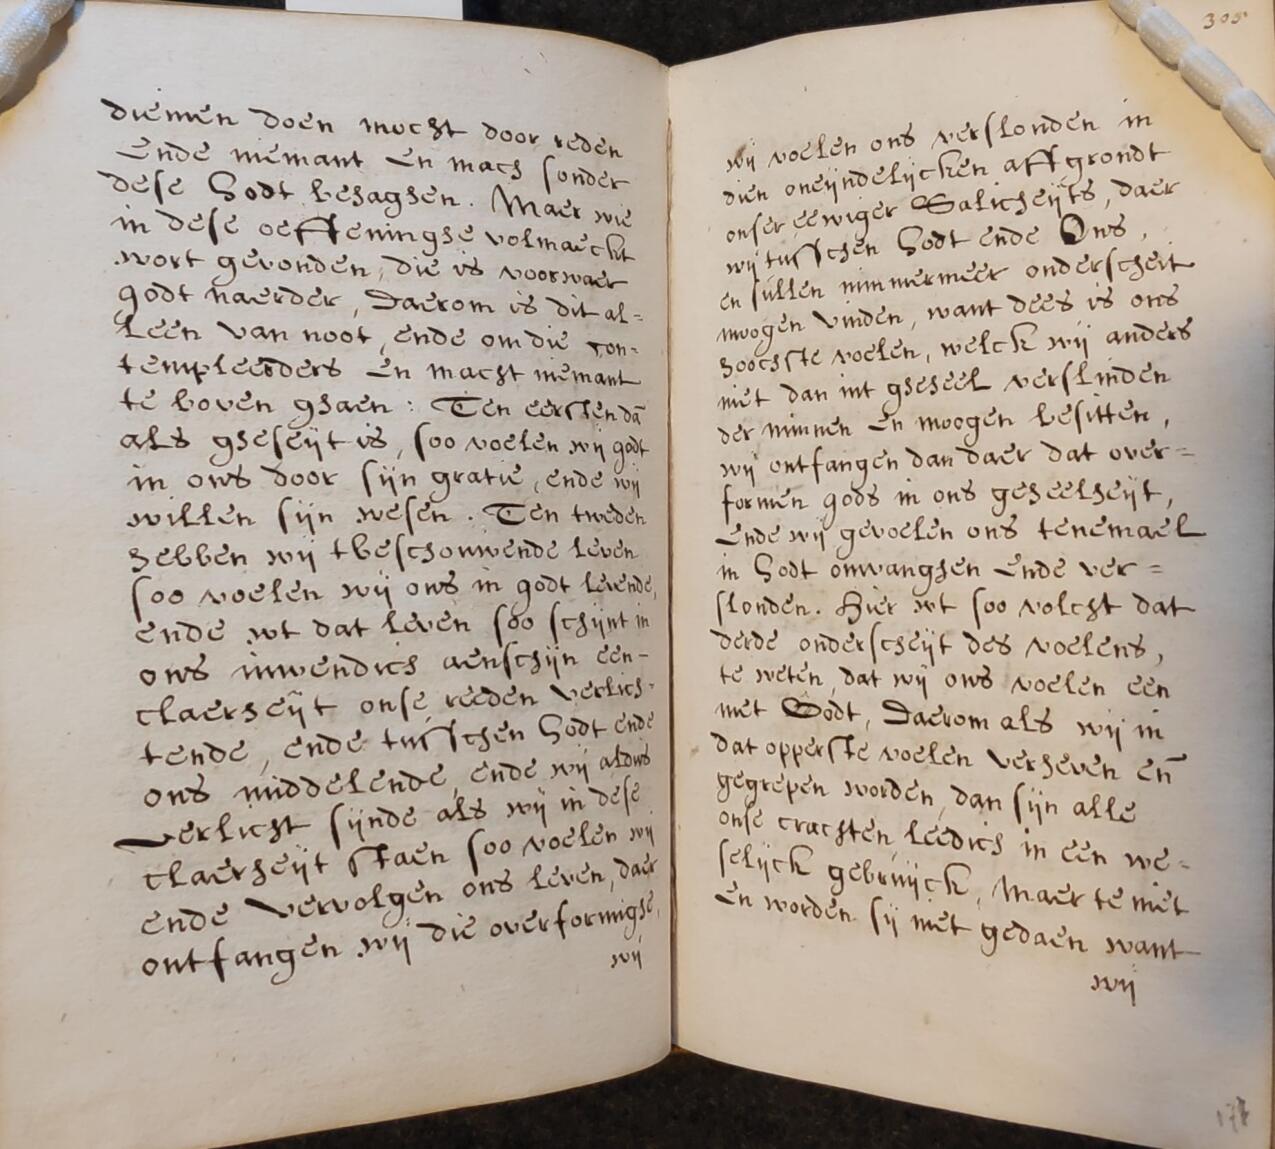 diemen doen mocht door reden
Ende niemant En mach sonder
dese Godt behaghen. Maer wie
in dese oeffeninghe volmaeckt
wort gevonden, die is voorwaer
godt naerder, Daerom is dit al=
leen van noot, ende om die con=
templeerders En macht niemant
te boven ghaen: Ten eersten dā
als gheseijt is, soo voelen wij godt
in ons door sijn gratie, ende wij
willen sijn wesen. Ten tweden
hebben wij tbeschouwende leven
soo voelen wij ons in godt levende,
ende wt dat leven soo schijnt in
ons inwendich aenschijn een-
claerheijt onse reeden verlich-
tende, ende tusschen Godt ende
ons middelende, ende wij aldus
verlicht sijnde als wij in dese
claerheijt staen soo voelen wij
ende vervolgen ons leven, daer
ontfangen wij die overformighe,
wij
305
wij voelen ons verslonden in
dien oneijndelijcken affgrondt
onser eewiger Salicheijts, daer
wij tusschen Godt ende Ons,
en sullen nimmermeer onderscheit
moogen vinden, want dees is ons
hoochste voelen, welck wij anders
niet dan int gheheel verslinden
der minnen En moogen besitten,
wij ontfangen dan daer dat over=
formen gods in ons geheelheijt,
Ende wij gevoelen ons tenemael
in Godt omvanghen Ende ver=
slonden. Hier wt soo volcht dat
derde onderscheijt des voelens,
te weten, dat wij ons voelen een
met Godt, Daerom als wij in
dat opperste voelen verheven en̄
gegrepen worden, dan sijn alle
onse crachten leedich in een we=
selijck gebruijck, Maer te niet
En worden sij niet gedaen want
wij